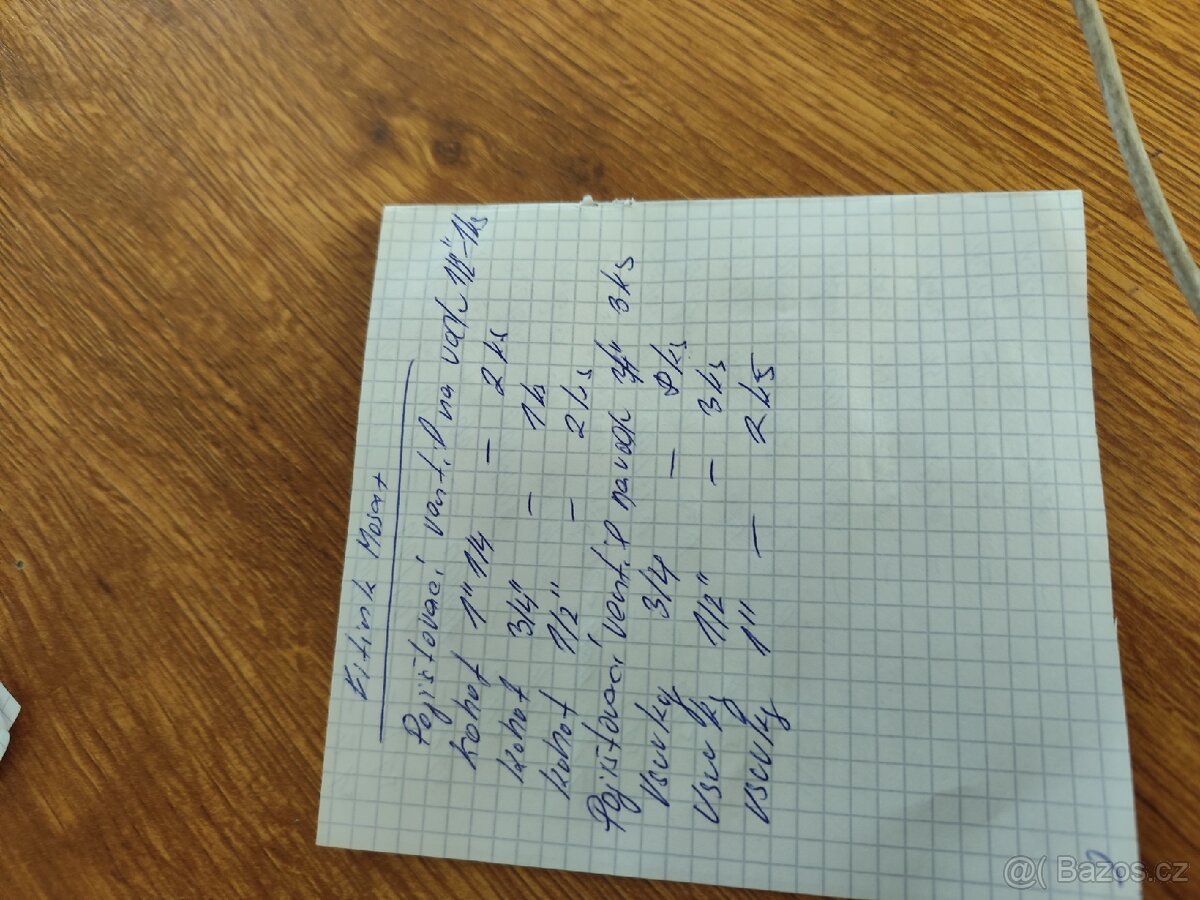 Fitink Mosaz
Pojišťovací ventil na vodu 1/2" - 1ks
kohot 1" 1/4 - 2 ks
kohot 3/4" - 1 ks
kohot 1/2" - 2 ks
Pojišťovací ventil na vodu 3/4" 3 ks
vsuvky 3/4 - 8 ks
vsuvky 1/2" - 3 ks
vsuvky 1" - 2 ks
@( Bazos.cz